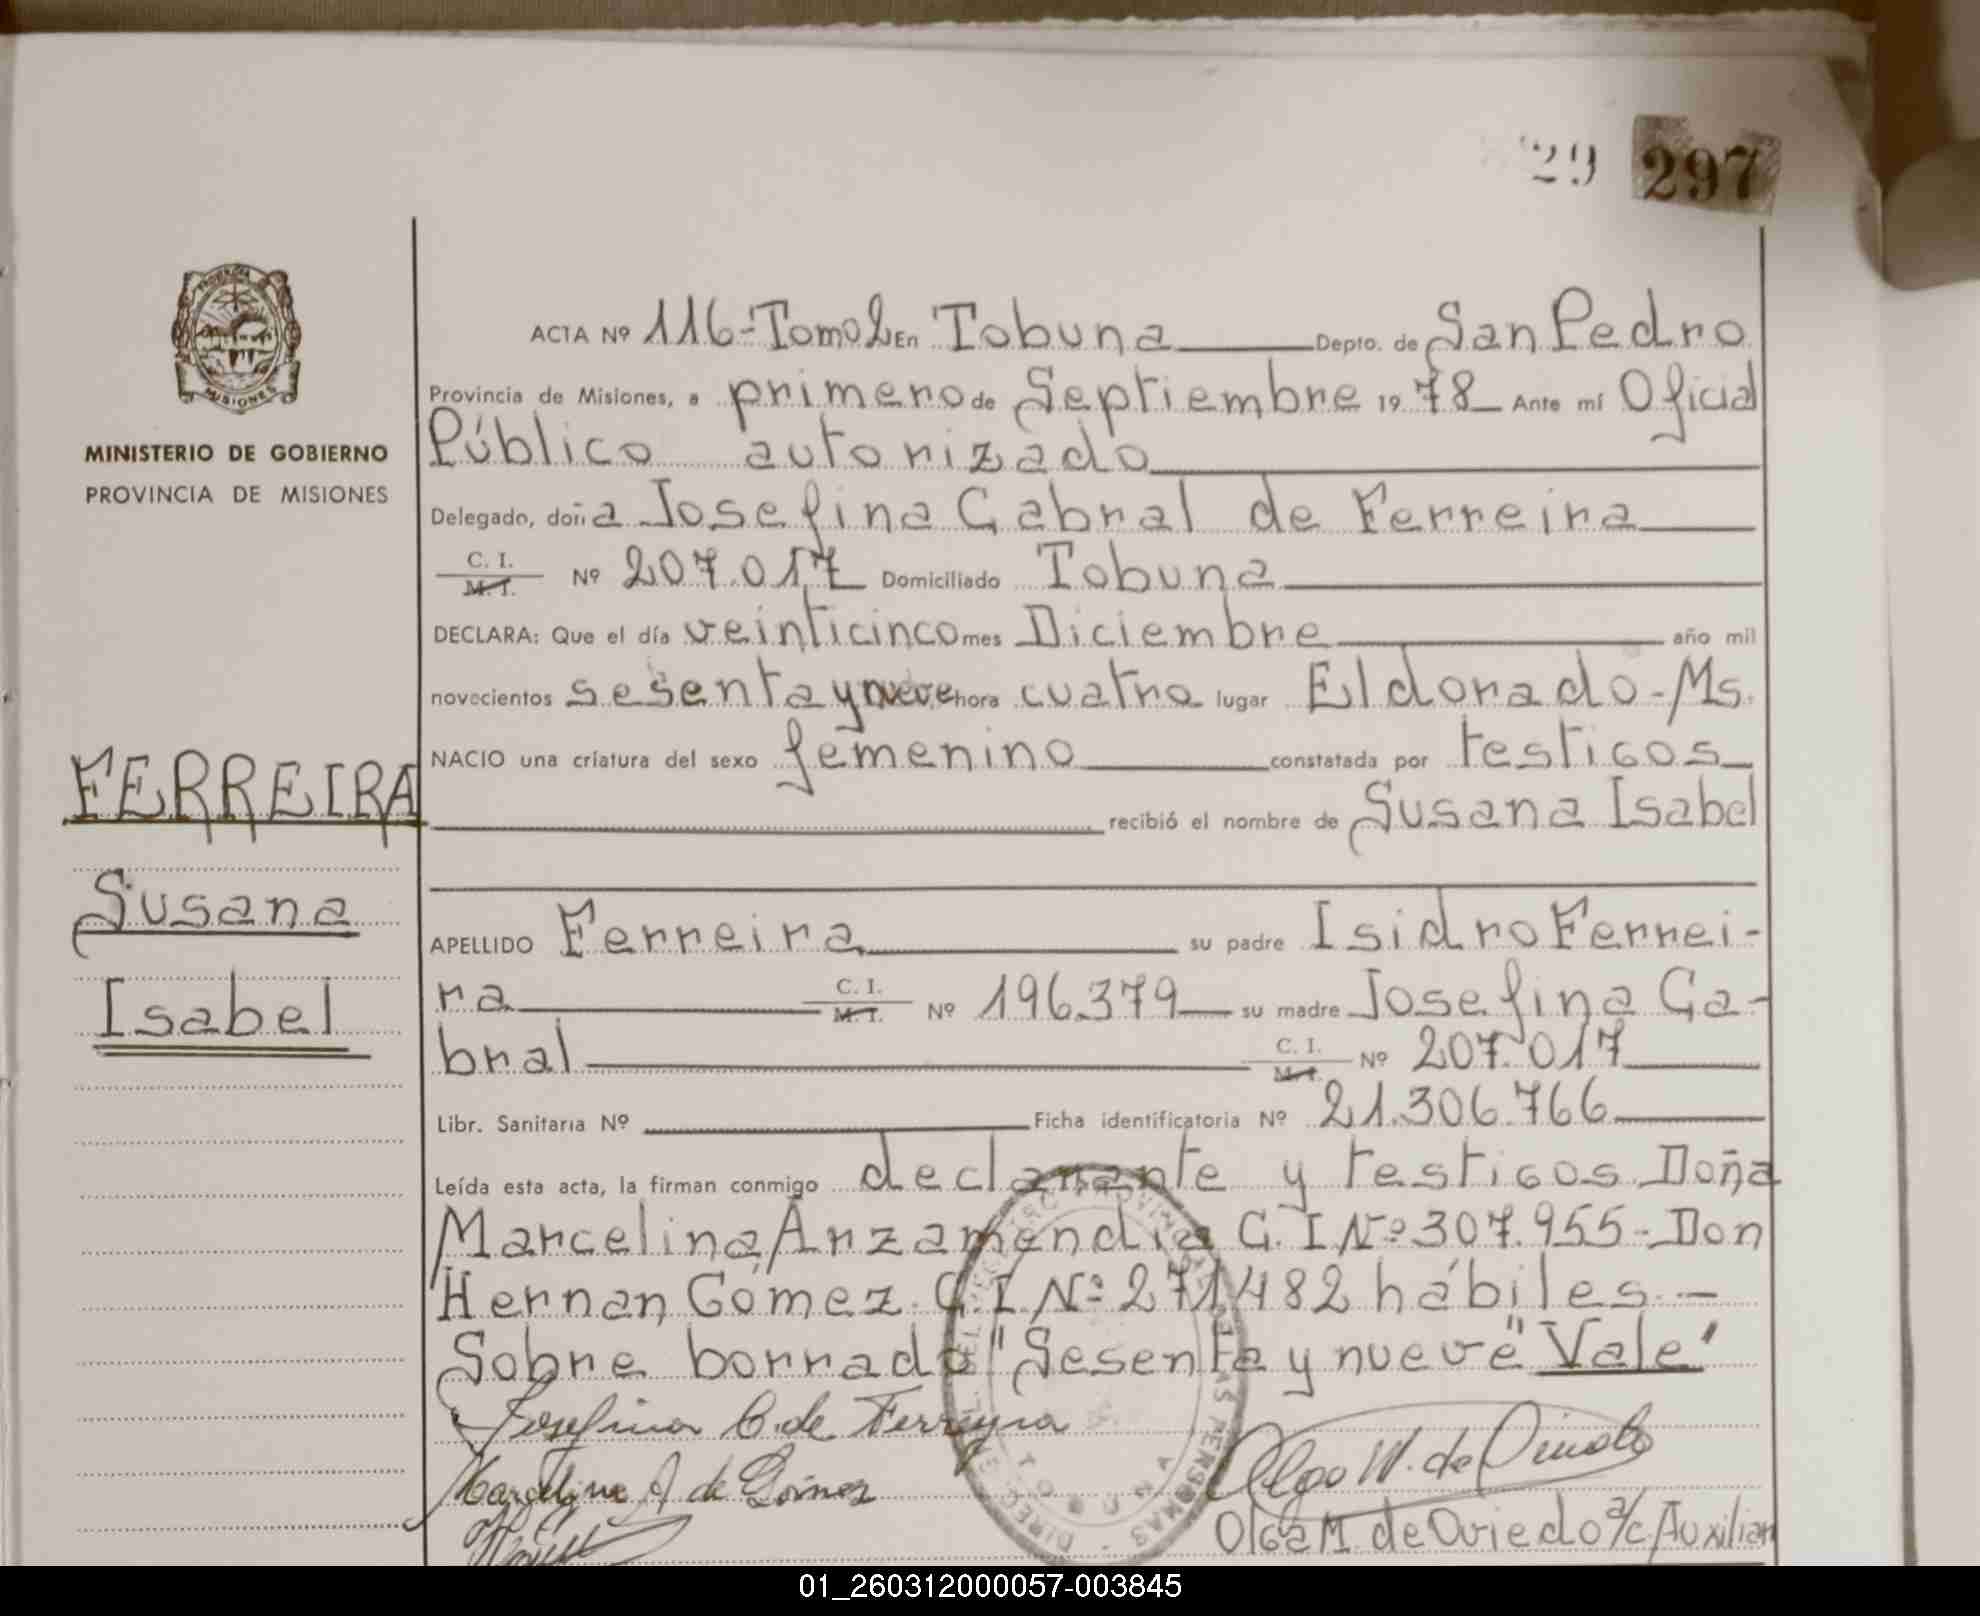 29 297
PROVINCIA
MISIONES
MINISTERIO DE GOBIERNO
PROVINCIA DE MISIONES
FERREIRA
Susana
Isabel
ACTA Nº 116-Tomo 2 En Tobuna Depto. de San Pedro
Provincia de Misiones, a primero de Septiembre 19 78 Ante mí Oficial
Público autorizado
Delegado, doña Josefina Cabral de Ferreira
C. I.
M. I. Nº 207.017 Domiciliado Tobuna
DECLARA: Que el día veinticinco mes Diciembre año mil
novecientos sesenta y nueve hora cuatro lugar Eldorado-Ms.
NACIO una criatura del sexo femenino constatada por testigos
recibió el nombre de Susana Isabel
APELLIDO Ferreira su padre Isidro Ferrei-
ra C. I. M. I. Nº 196.379 su madre Josefina Ca-
bral C. I. M. I. Nº 207.017
Libr. Sanitaria Nº Ficha identificatoria Nº 21.306.766
Leída esta acta, la firman conmigo declarante y testigos Doña
Marcelina Arzamendia C. I Nº 307.955-Don
Hernan Gómez C. I. Nº 271482 hábiles.-
Sobre borrado "Sesenta y nueve" Vale'
Josefina C. de Ferreyra
Marcelina A. de Gómez
Olga M. de Oviedo
Olga M. de Oviedo a/c. Auxiliar
TOBUNA
01_260312000057-003845